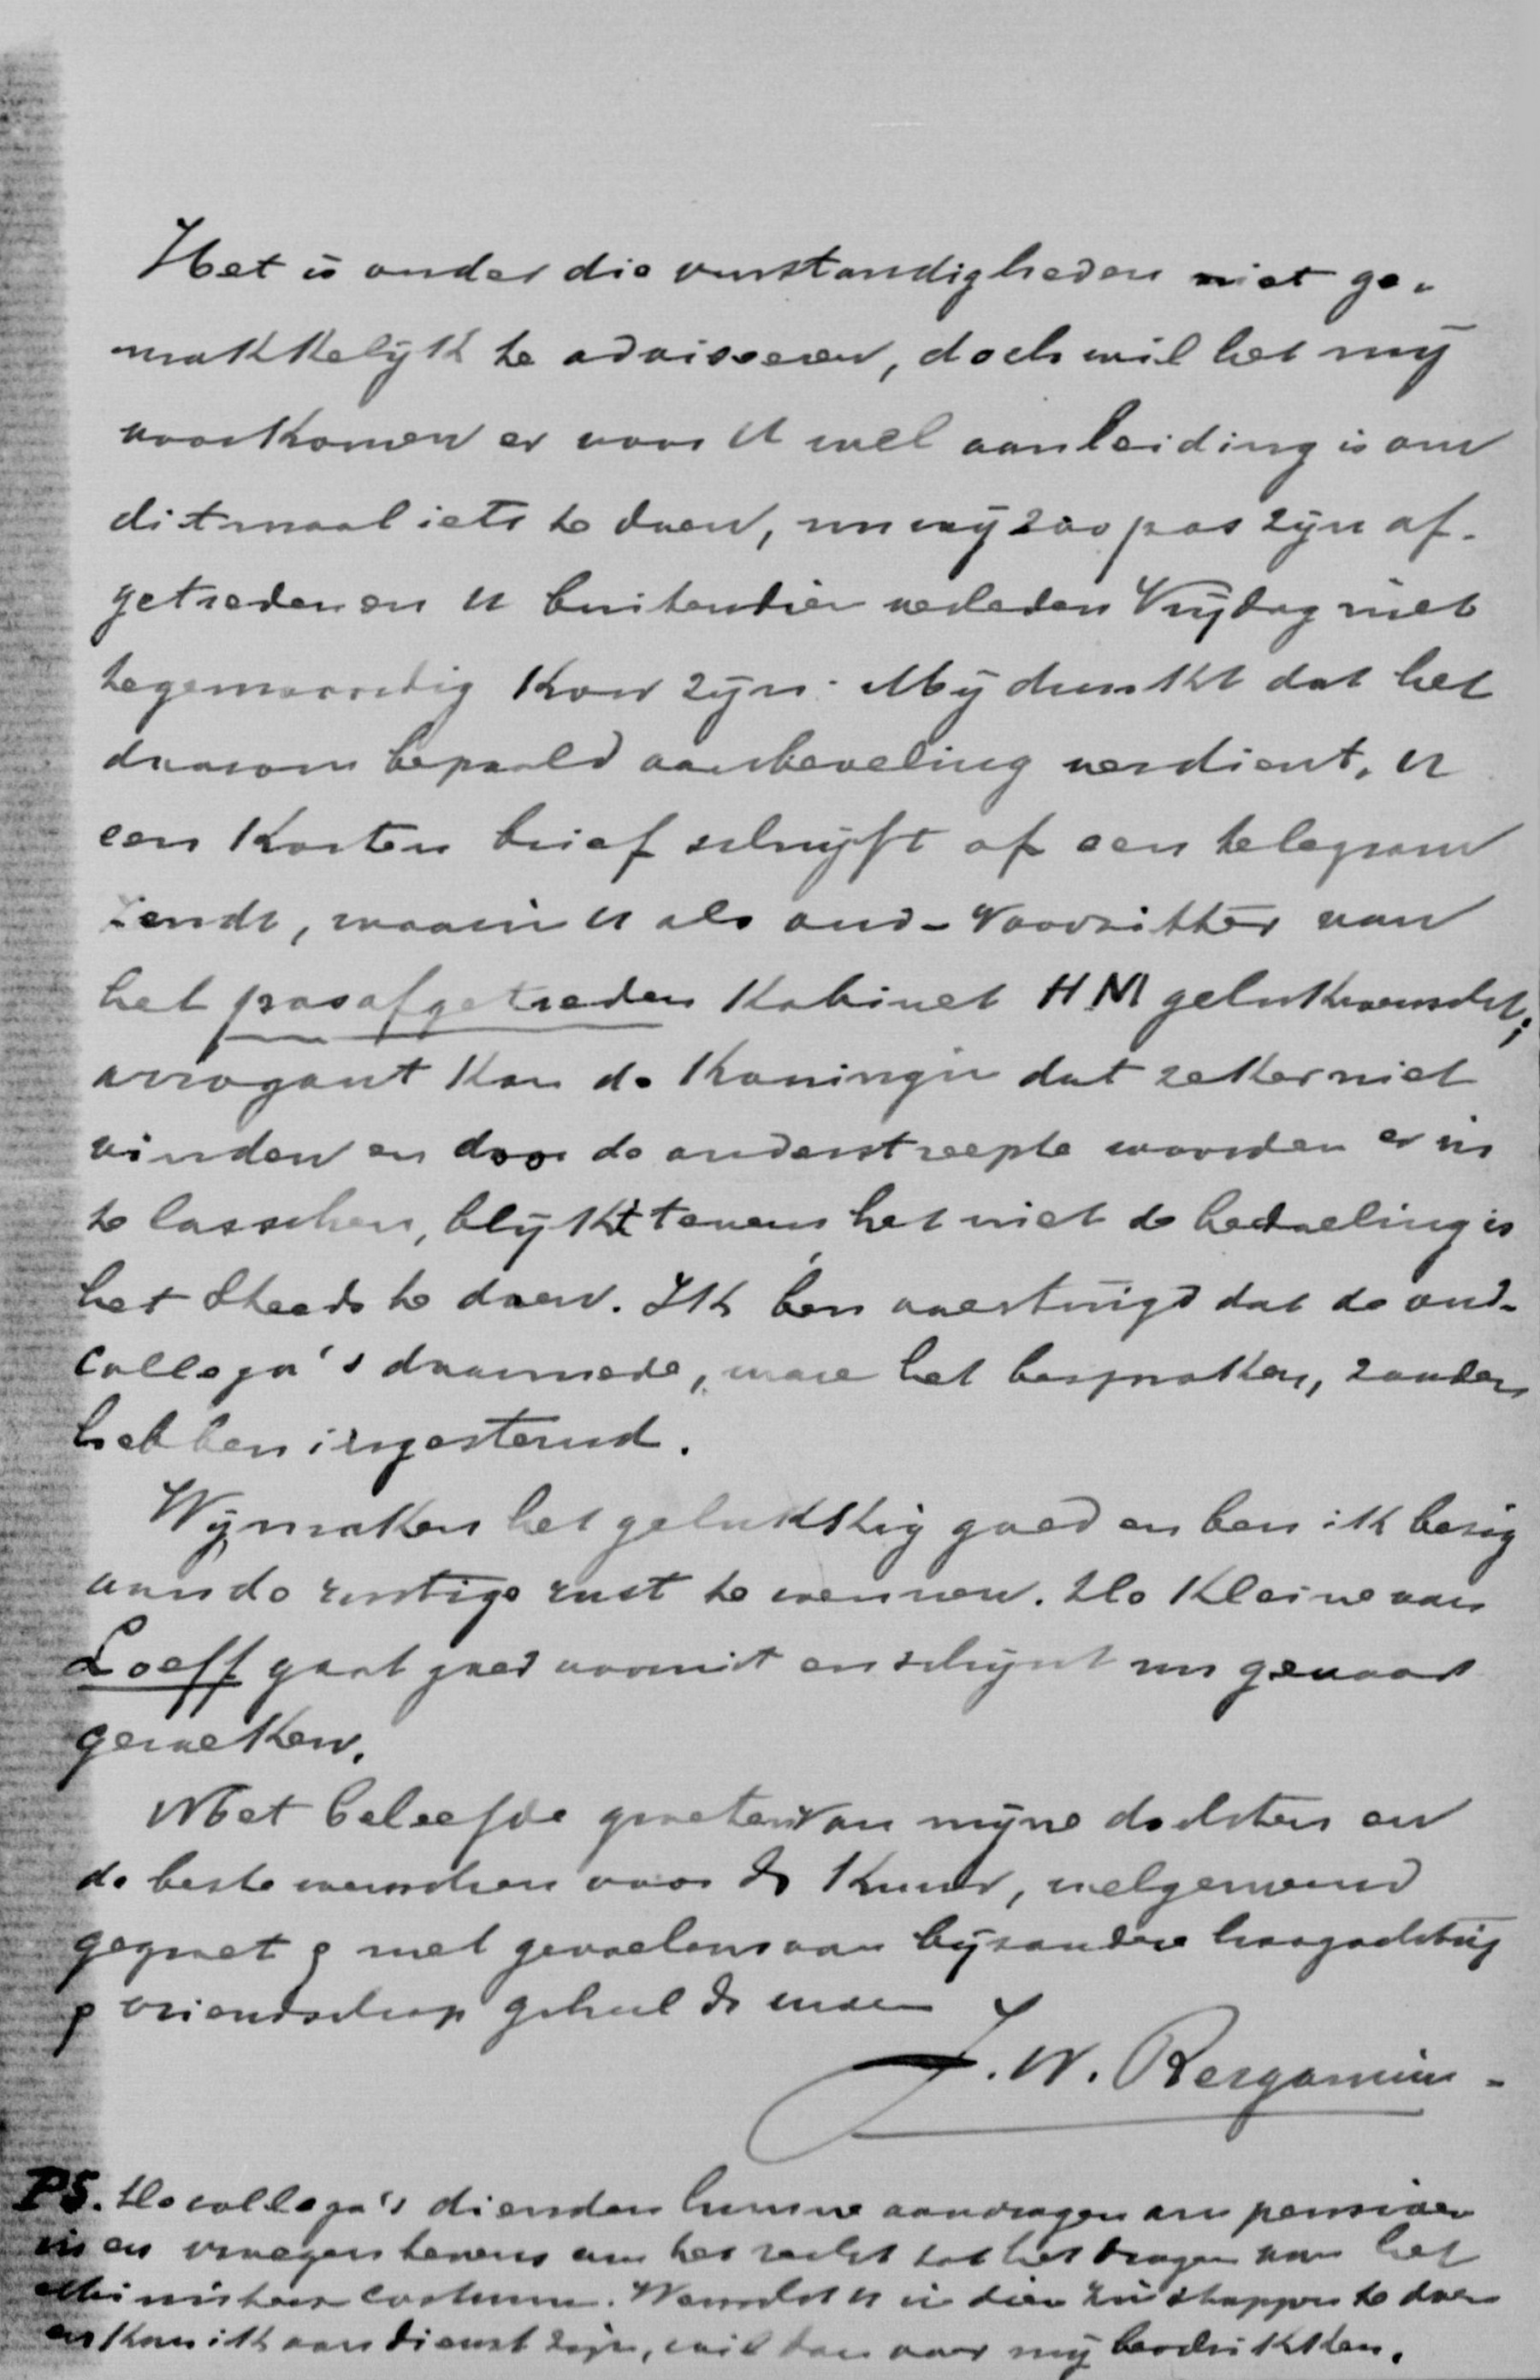 Het is onder die omstandigheden niet ge-
makkelijk te adviseeren, doch wil het mij
voorkomen er voor U wel aanleiding is om
ditmaal iets te doen, nu wij zoo pas zijn af-
getreden en U buitendien verleden Vrijdag niet
tegenwoordig kon zijn. Mij dunkt dat het
daarom bepaald aanbeveling verdient, U
een korten brief schrijft of een telegram
zendt, waarin U als oud-Voorzitter van
het pas afgetreden Kabinet HM gelukwenscht;
arrogant kan de Koningin dat zeker niet
vinden en door de onderstreepte woorden er in
te lasschen, blijkt tevens het niet de bedoeling is
het steeds te doen. Ik ben overtuigd dat de oud-
collega's daarmede, ware het besproken, zouden
hebben ingestemd.
Wij maken het gelukkig goed en ben ik bezig
aan de rustige rust te wennen. De kleine van
Loeff gaat goed vooruit en schijnt nu gevaar
geweken.
Met beleefde groeten van mijne dochters en
de beste wenschen voor de kuur, welgemeend
gegroet & met gevoelens van bijzondere hoogachting
& vriendschap geheel de uwe
J. W. Bergansius -
PS. De collega's dienden hunne aanvragen om pensioen
in en vroegen tevens om het recht tot het dragen van het
Ministers costuum. Wenscht U in dien zin stappen te doen
en kan ik van dienst zijn, wil dan over mij beschikken.